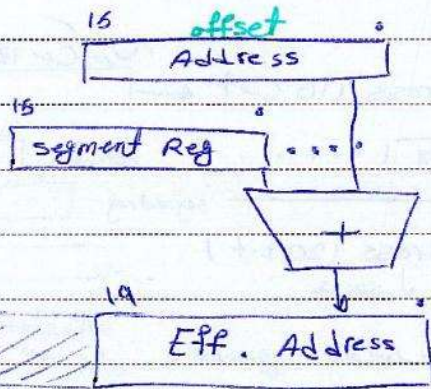 offset
15 0
Address
15 0
segment Reg 0000
+
19 0
Eff. Address